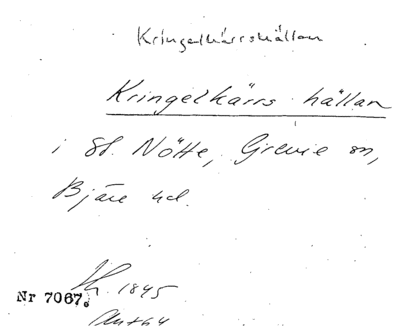 Kringelkärrshällan
Kringelkärrs hällan
i St. Nötte, Grevie sn,
Bjäre hd.
1845
Nr 7067.